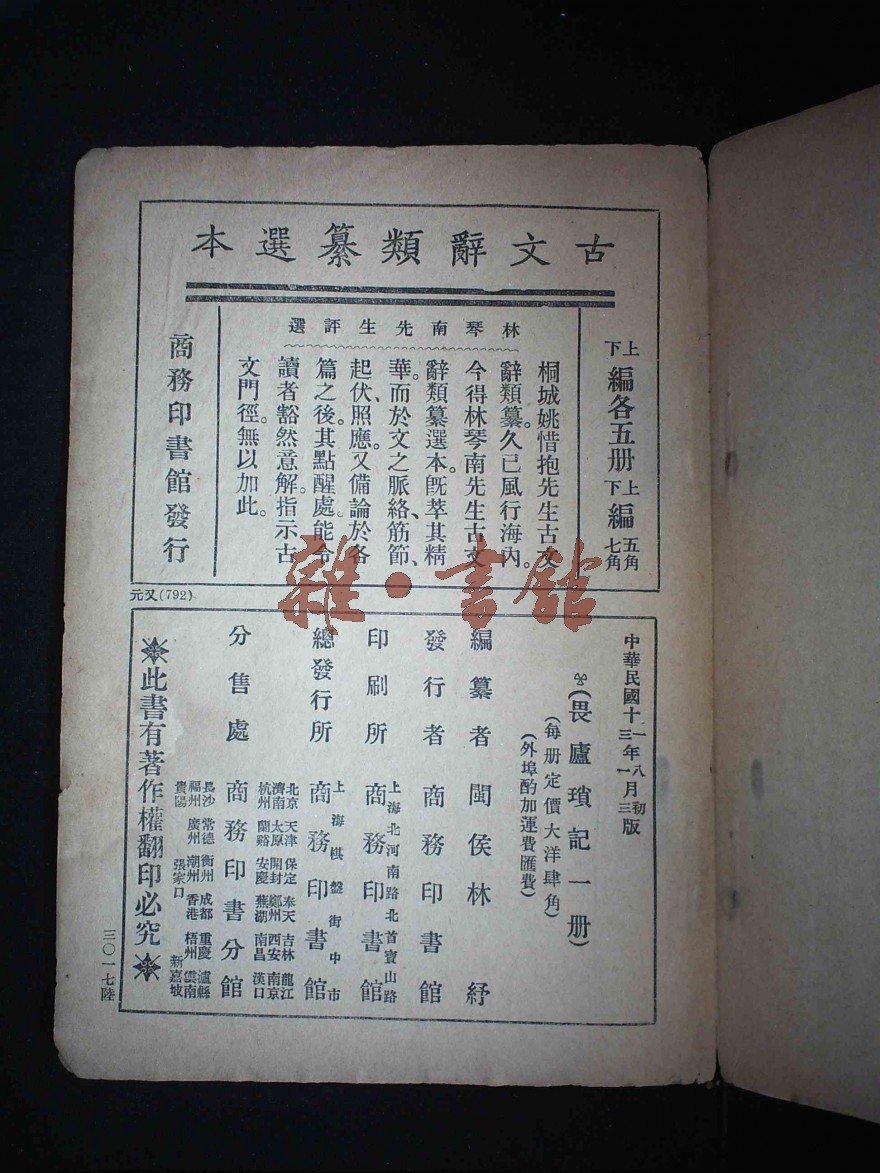 古文辭類纂選本
上下編各五册 上編五角 下編七角
林琴南先生評選
桐城姚惜抱先生古文
辭類纂。久已風行海內。
今得林琴南先生古文
辭類纂選本。旣萃其精
華。而於文之脈絡、筋節、
起伏、照應。又備論於各
篇之後。其點醒處。能令
讀者豁然意解。指示古
文門徑。無以加此。
商務印書館發行
元又(792)
中華民國十一年八月初版
十三年一月三版
(畏廬瑣記一册)
(每册定價大洋肆角)
(外埠酌加運費匯費)
編纂者 閩侯林紓
發行者 商務印書館
印刷所 上海北河南路北首寶山路 商務印書館
總發行所 上海棋盤街中市 商務印書館
分售處 商務印書分館
北京 天津 保定 奉天 吉林 龍江
濟南 太原 開封 鄭州 西安 南京
杭州 蘭谿 安慶 蕪湖 南昌 漢口
長沙 常德 衡州 成都 重慶 瀘縣
福州 廣州 潮州 香港 梧州 雲南
貴陽 張家口 新嘉坡
此書有著作權翻印必究
三〇一七陸
雜·書館